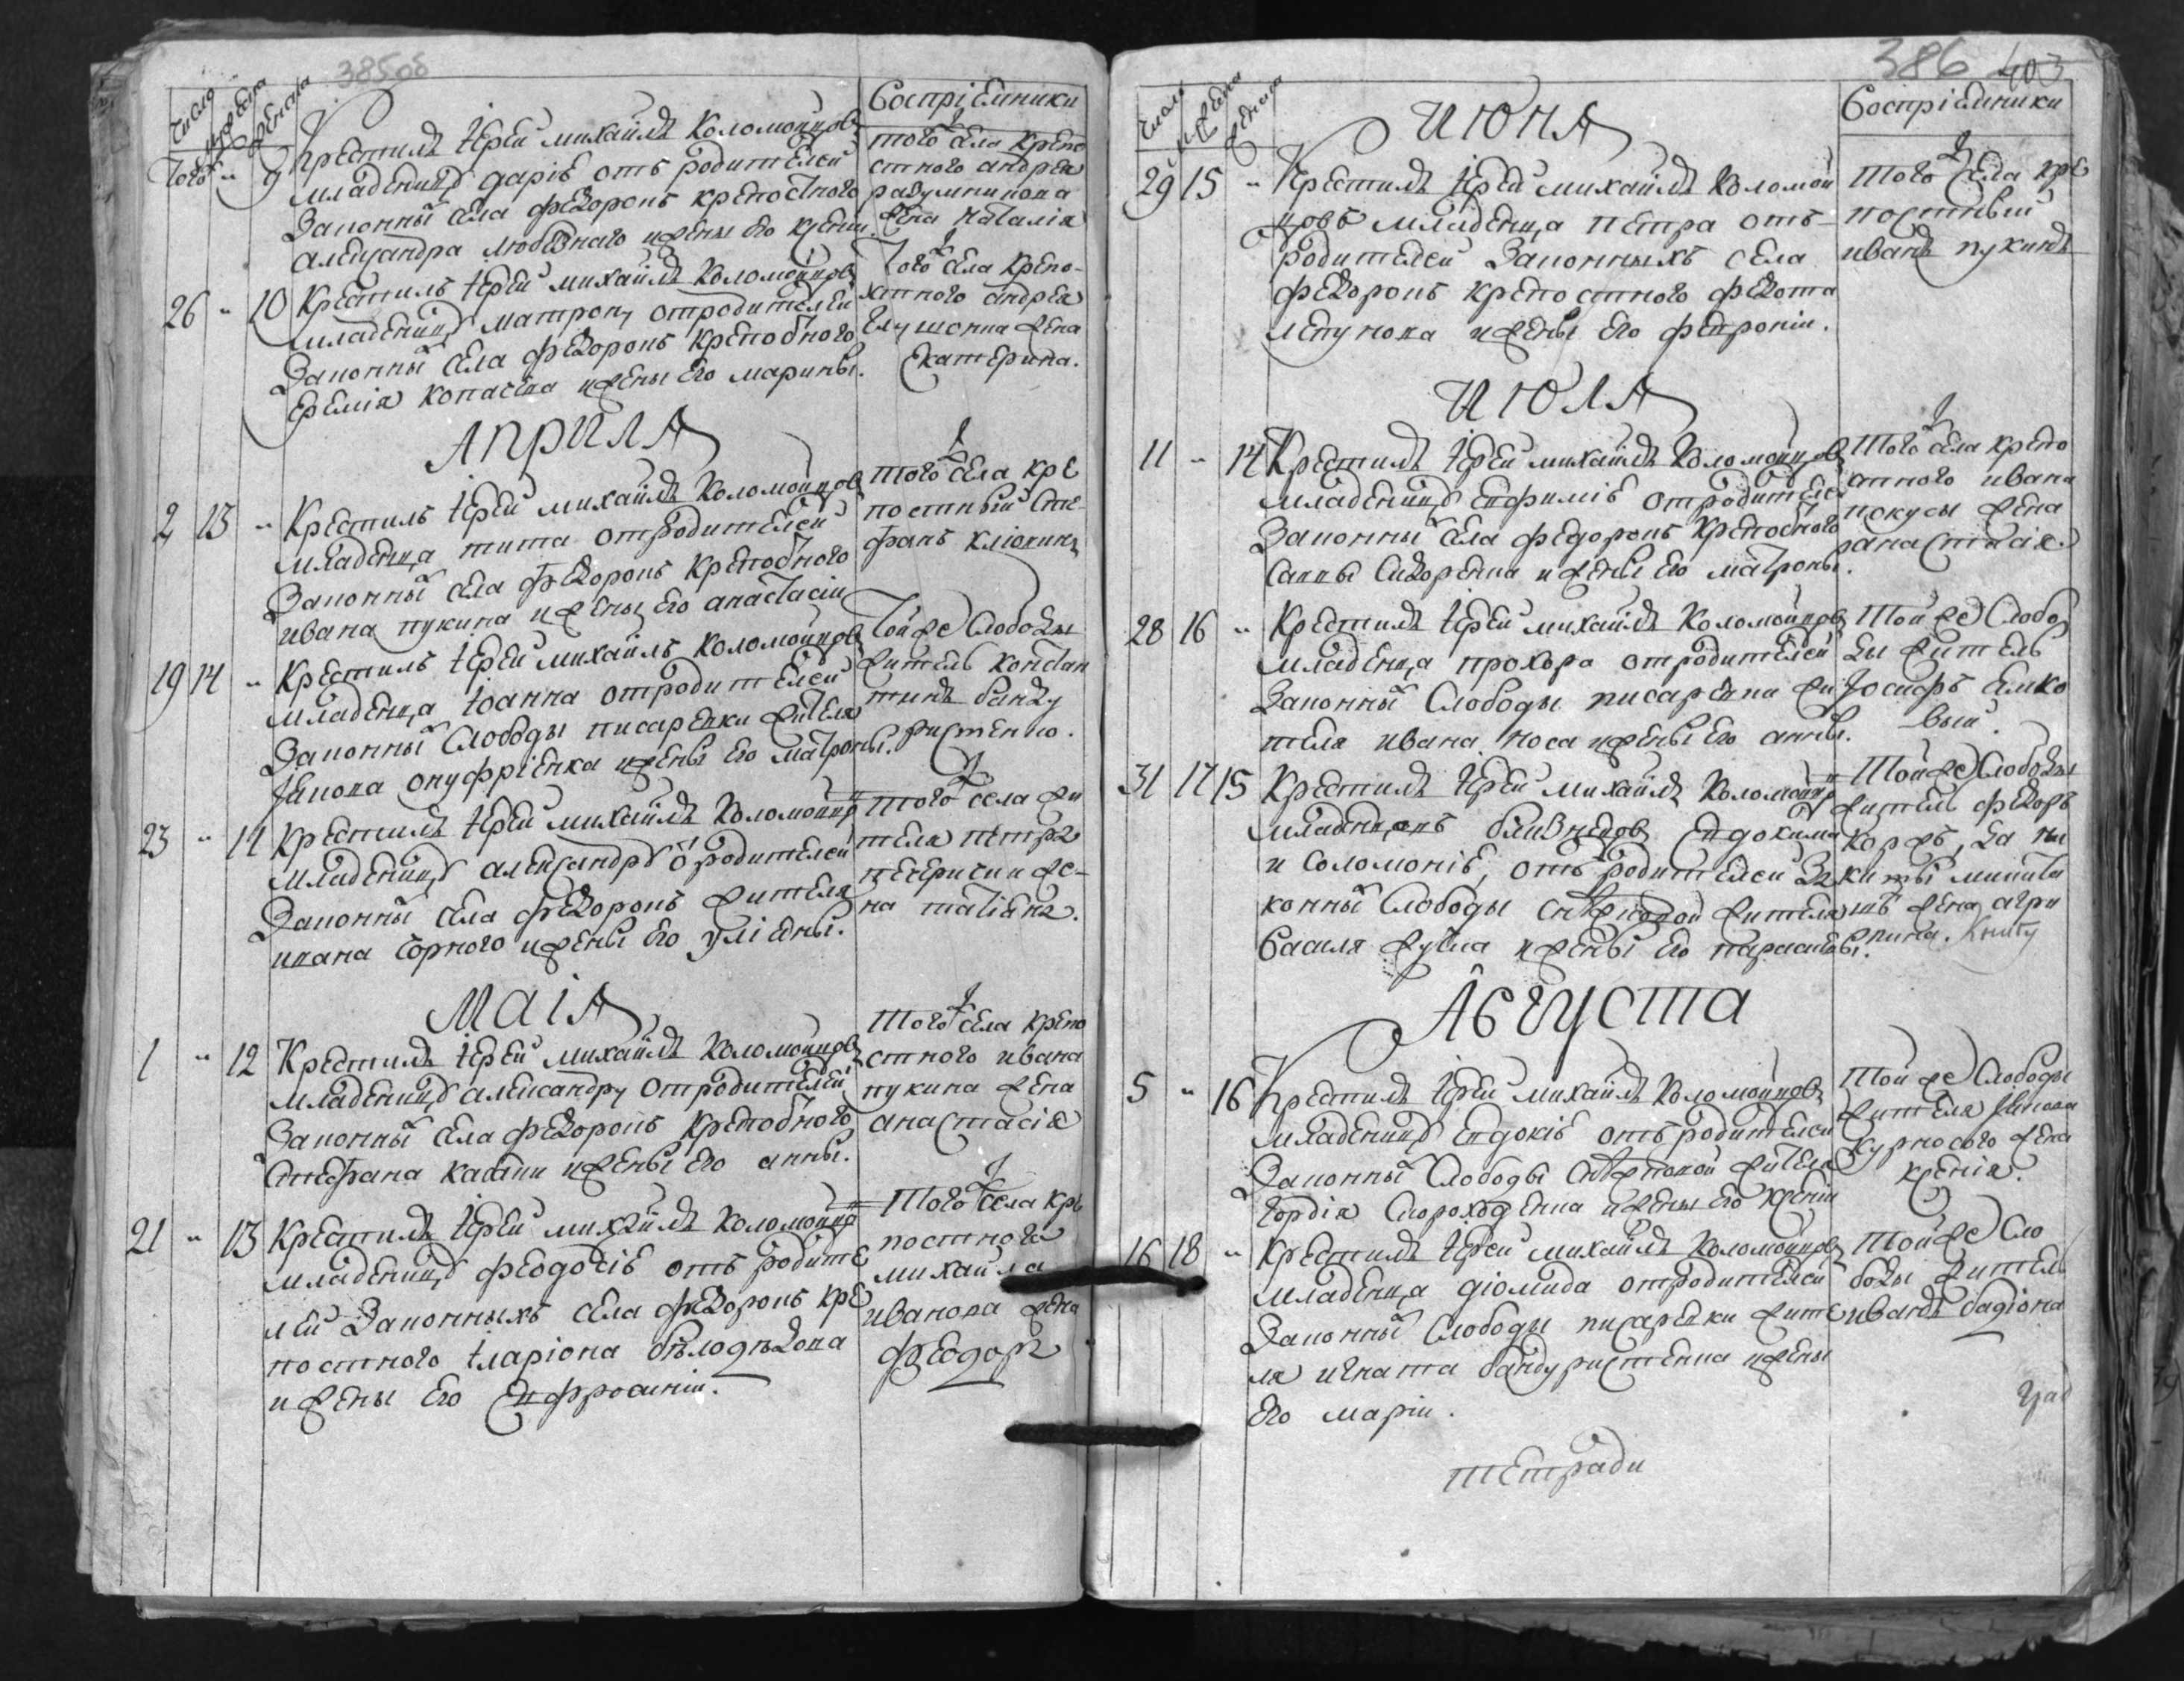 385об
Число
мужеска
женска
Воспріемники
Того 9 Крестилъ іерей михаилъ Коломойцовъ
младеницу даріѣ отъ родителей
Законны села федоровъ крепостного
александра любезнаго и жены его ксеніи.
того села крепо
стного андрея
жена наталія
26 " 10 Крестилъ іерей михаилъ Коломойцовъ
младеницу матрону отродителей
Законны села федоровъ крепосного
еремія копасена и жены его марины.
Того села крепо-
стного андрея
жена
екатерина.
Априля
2 13 " Крестилъ іерей михаилъ Коломойцовъ
младенца тита отродителей
Законны села федоровъ крепосного
ивана пукина и жены его анастасіи
того села кре
постный сте
фанъ клюкинъ
19 14 " Крестилъ іерей михаилъ Коломойцовъ
младенца іоанна отродителей
Законны слободы писаревки жителя
якова онуфріенка и жены его матроны.
Той же слободы
житель констан
тинъ банду
ристенко.
23 " 11 Крестилъ іерей михаилъ Коломойцо
младеницу александру о родителей
Законны села федоровъ жителя
ивана чорного и жены его уліяны.
того села жи
теля петра
же-
на татіяна.
Маія
1 " 12 Крестилъ іерей михаилъ Коломойцовъ
младеницу александру отродителей
Законны села федоровъ крепосного
стефана касяни и жены его анны.
того села крепо
стного ивана
пукина жена
анастасія
21 " 13 Крестилъ іерей михаилъ Коломойцо
младеницу феодосіѣ отъ родите
лей Законныхъ села федоровъ кре
постного іларіона бѣлодѣдова
и жены его евфросиніи.
того села кре
постного
михаила
иванова жена
феодора
386 403
Число
мужеска
женска
Воспріемники
Июня
29 15 " Крестилъ іерей михаилъ Коломой
цовъ младенца петра отъ
родителей Законныхъ села
федоровъ крепостного федота
лепунова и жены его февроніи.
того села кре
постный
иванъ пукинъ
Июля
11 " 14 Крестилъ іерей михаилъ Коломойцовъ
младеницу евфиміѣ отродителей
Законны села федоровъ крепосного
саввы сидоренка и жены его матроны.
того села крепо
стного ивана
покусы жена
анастасія.
28 16 " Крестилъ іерей михаилъ Коломойцовъ
младенца прохора отродителей
Законны слободы писаревки жи
теля ивана носа и жены его анны.
той же слобо
ды житель
Іосифъ
вый.
31 17 15 Крестилъ іерей михаилъ Коломойцо
младенцовъ близнецовъ евдокима
и соломоніѣ, отъ родителей За
конны слободы снежковой жителя
василя жука и жены его параскевы.
той же слободы
житель федоръ
да ни
киты
жена агри
пина.
Августа
5 " 16 Крестилъ іерей михаилъ Коломойцовъ
младеницу евдокіѣ отъ родителей
Законны слободы снежковой жителя
гордія скороходенка и жены его ксеніи
той же слободы
жителя якова
курносого жена
ксенія.
16 18 " Крестилъ іерей михаилъ Коломойцовъ
младенца діомида отродителей
Законны слободы писаревки жите
ля игната бандуристенка и жены
его маріи.
той же сло
боды житель
иванъ
тетради